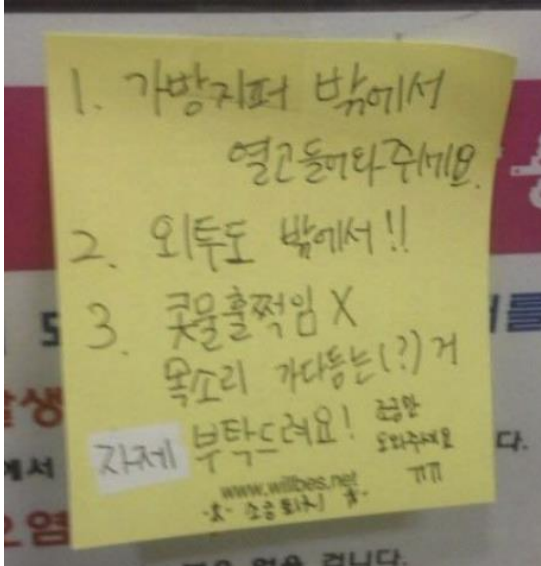 1. 가방지퍼 밖에서
열고 들어와주세요.
2. 외투도 밖에서!!
3. 콧물훌쩍임 X
목소리 가다듬는(?) 거
자제 부탁드려요!
조금만
도와주세요
ㄲㄲ
www.willbes.net
-☆- 소음퇴치 -☆-
생
에서
다.
염